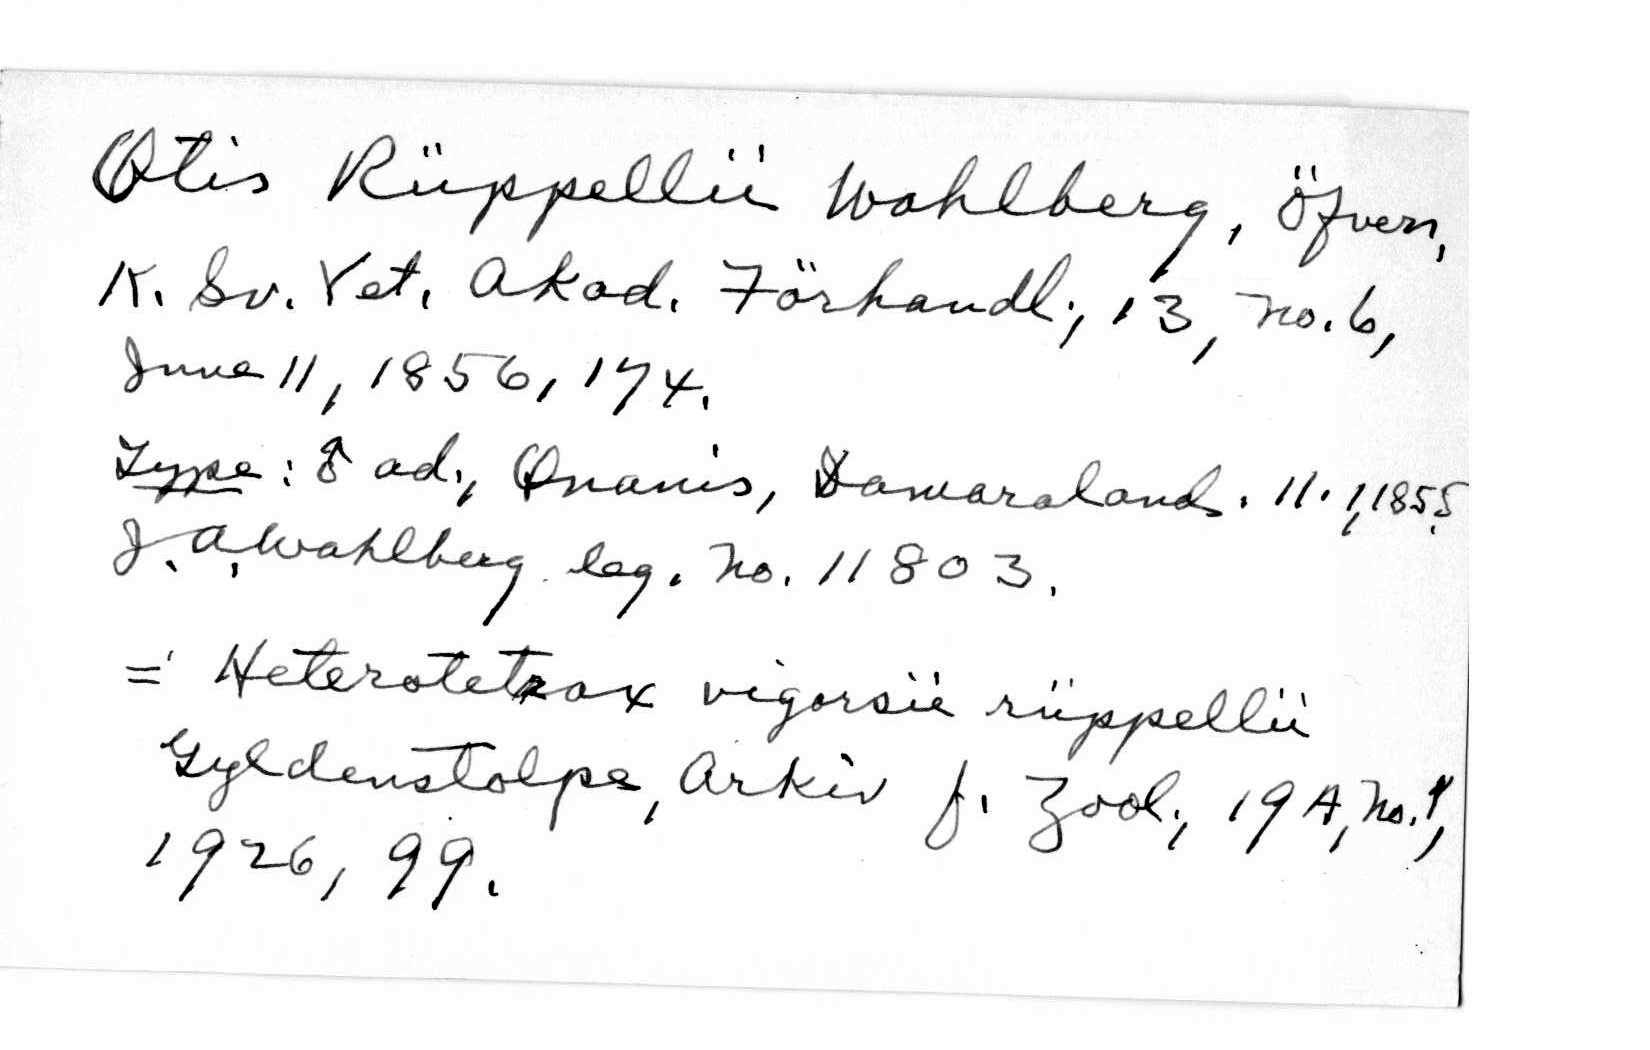 Otis Rüppellii Wahlberg, Öfvers,
K. Sv. Vet. Akad. Förhandl., 13, no. 6,
June 11, 1856, 174.
Type: ♂ ad., Onanis, Damaraland. 11. 1, 1855
J. A. Wahlberg leg. No. 11803.
= Heterotetrax vigorsii rüppellii
Gyldenstolpe, Arkiv f. Zool., 19 A, No. 1,
1926, 99.